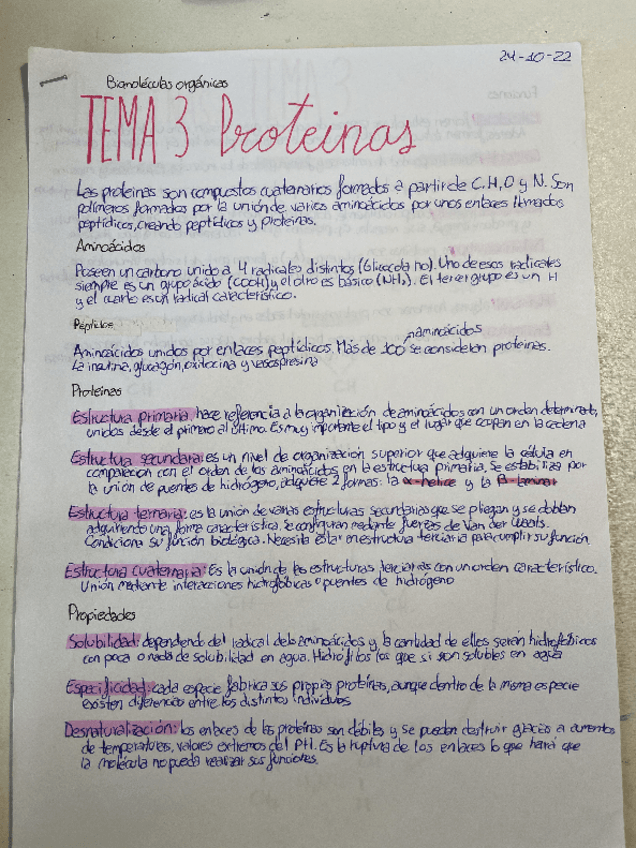 24-10-22
Biomoléculas orgánicas
TEMA 3 Proteinas
Las proteinas son compuestos cuaternarios formados a partir de C, H, O y N. Son
polímeros formados por la unión de varios aminoácidos por unos enlaces llamados
peptídicos, creando peptídicos y proteinas.
Aminoácidos
Poseen un carbono unido a 4 radicales distintos (Glicocola no). Uno de esos radicales
siempre es un grupo ácido (COOH) y el otro es básico (NH₂). El tercer grupo es un H
y el cuarto es un radical característico.
Péptidos
aminoácidos
Aminoácidos unidos por enlaces peptídicos. Más de 100 se consideran proteinas.
La insulina, glucagón, oxitocina y vasopresina
Proteinas
Estructura primaria: hace referencia a la organización de aminoácidos con un orden determinado,
unidos desde el primero al último. Es muy importante el tipo y el lugar que ocupan en la cadena
Estructura secundaria: es un nivel de organización superior que adquiere la célula en
comparación con el orden de los aminoácidos en la estructura primaria, se estabiliza por
la unión de puentes de hidrógeno, adquiere 2 formas: la α-helice y la β-laminar
Estructura terciaria: es la unión de varias estructuras secundarias que se pliegan y se doblan
adquiriendo una forma característica. Se configuran mediante fuerzas de Van der Waals.
Condiciona su función biológica. Necesita estar en estructura terciaria para cumplir su función
Estructura cuaternaria: Es la unión de las estructuras terciarias con un orden característico.
Unión mediante interacciones hidrofóbicas o puentes de hidrógeno
Propiedades
Solubilidad: dependendo del radical de los aminoácidos y la cantidad de ellos serán hidrofóbicos
con poca o nada de solubilidad en agua. Hidrófilos los que si son solubles en agua
Especificidad: cada especie fabrica sus propias proteinas, aunque dentro de la misma especie
existen diferencias entre los distintos individuos.
Desnaturalización: los enlaces de las proteinas son débiles y se pueden destruir gracias a aumentos
de temperaturas, valores extremos del PH. Es la ruptura de los enlaces lo que hará que
la molécula no pueda realizar sus funciones.